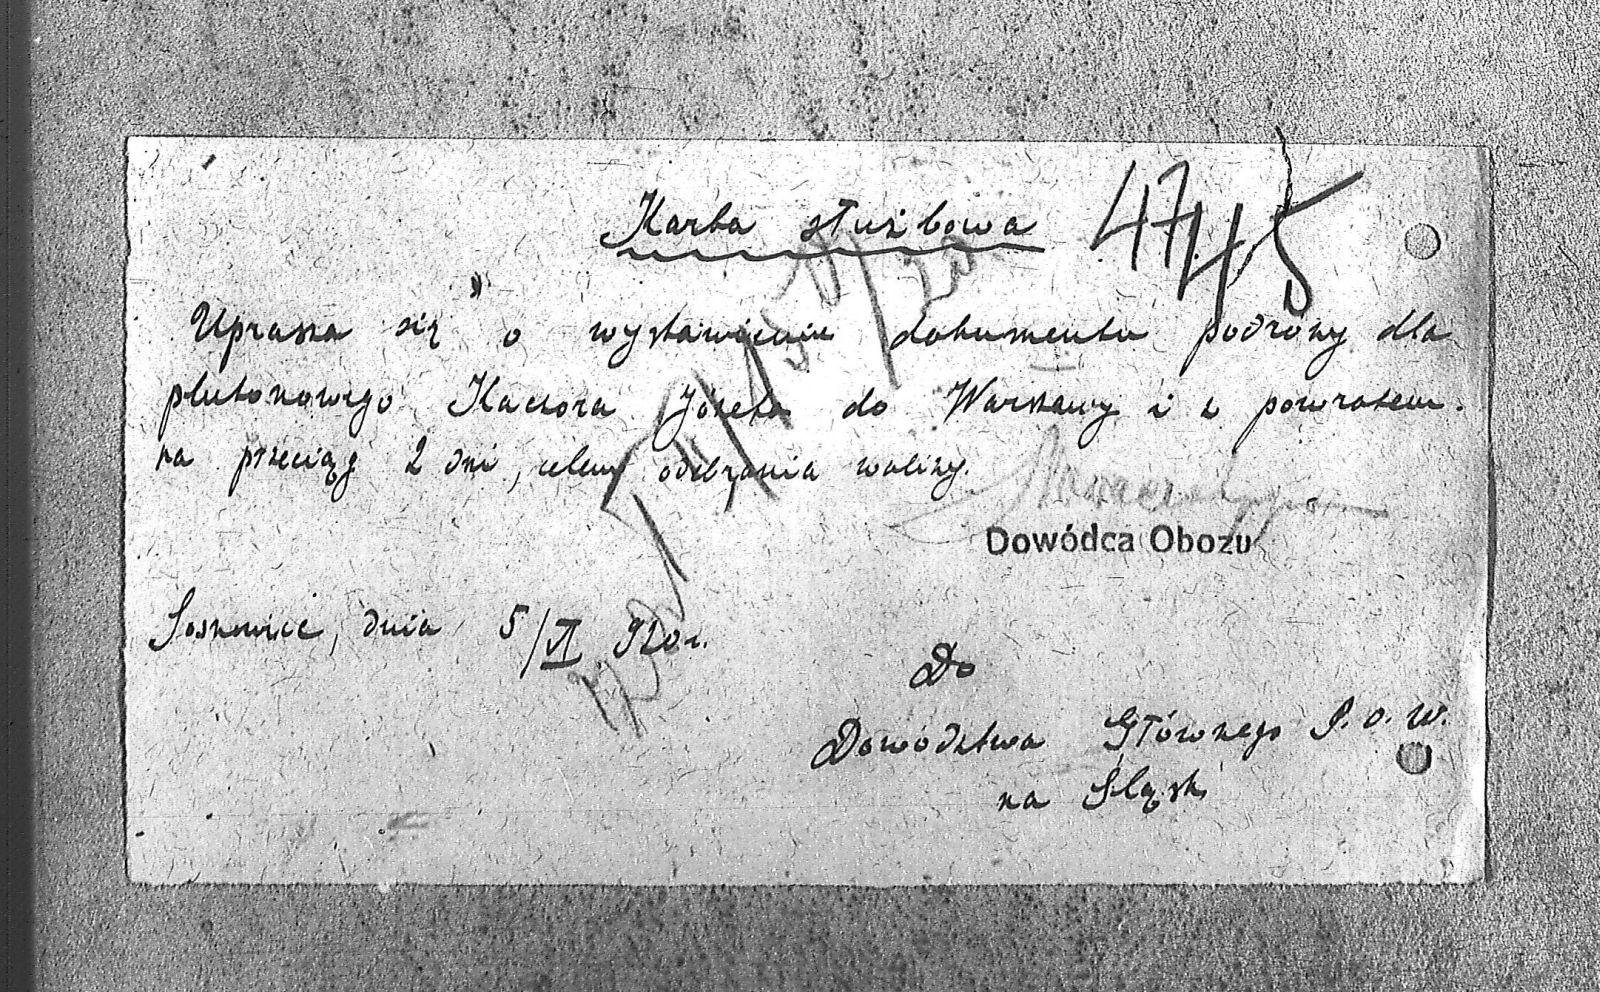 Karta służbowa 4745
Uprasza się o wystawienie dokumentu podróży dla
plutonowego Kaczora Józefa do Warszawy i z powrotem.
na przeciąg 2 dni, celem odebrania walizy.
Dowódca Obozu
Sosnowiec, dnia 5/VI 920 r.
Do
Dowództwa Głównego P.O.W.
na Śląsk